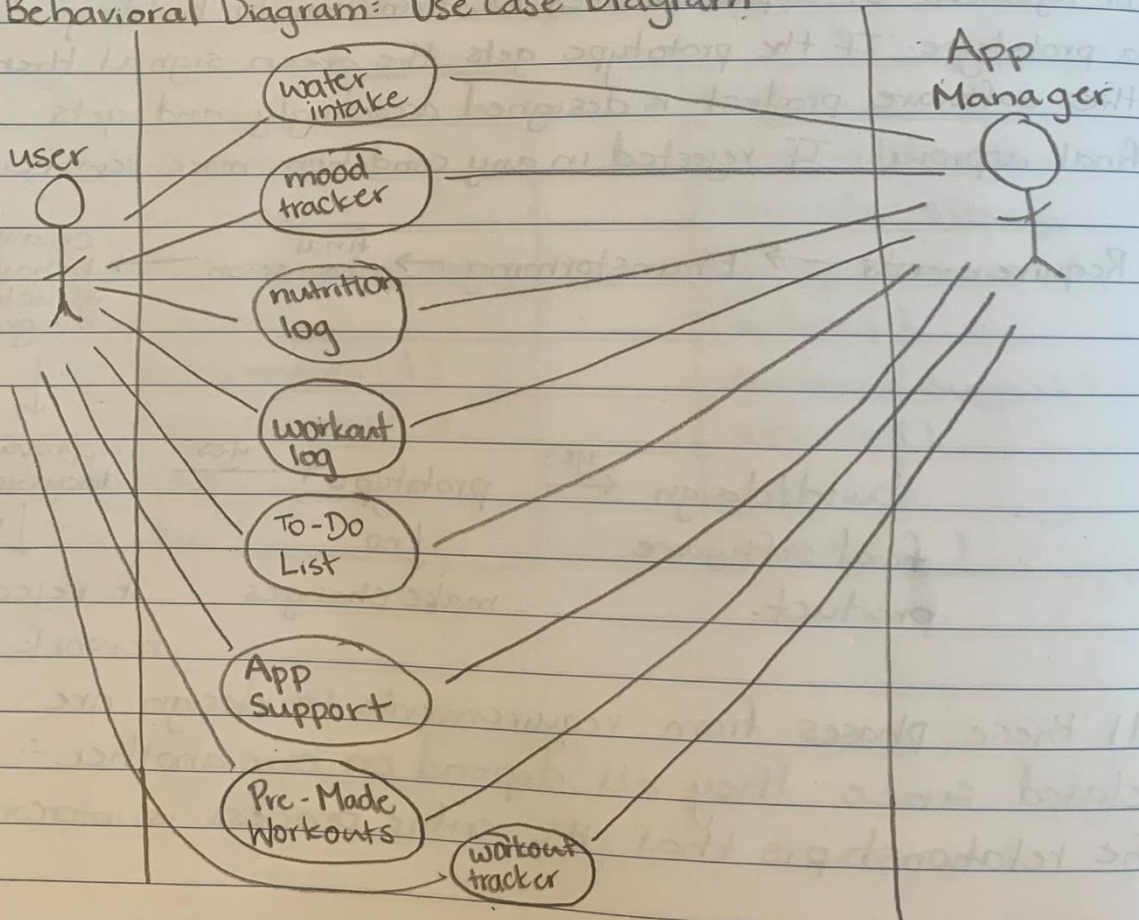 Behavioral Diagram: Use Case Diagram
App
Manager
user
water
intake
mood
tracker
nutrition
log
workout
log
To-Do
List
App
Support
Pre-Made
Workouts
workout
tracker